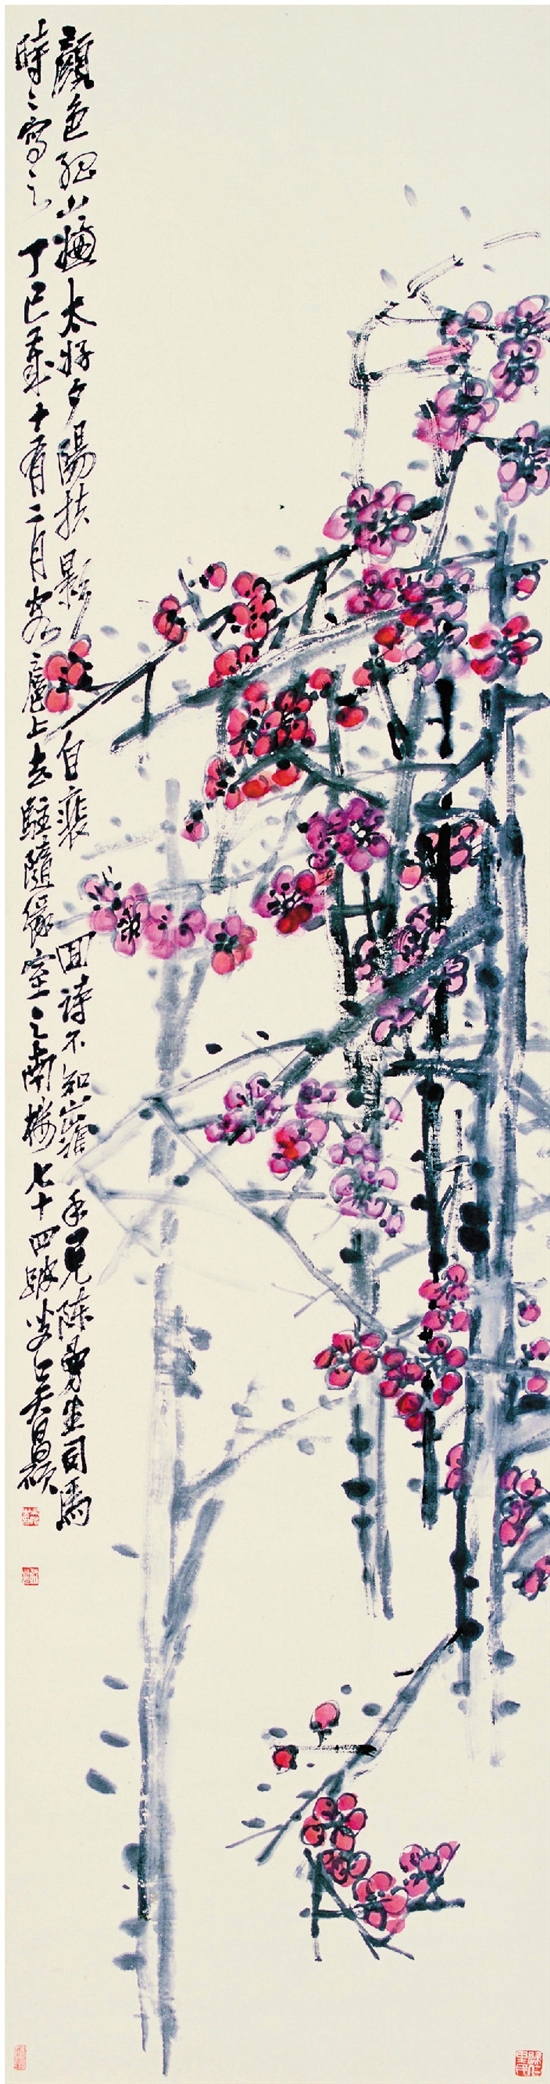 顏色孤山極太好夕陽扶影自裴回詩不知 手見陳曼生司馬
時時寫之丁巳歲十有二月客滬上去駐隨緣室之南樓七十四跛叟吳昌碩